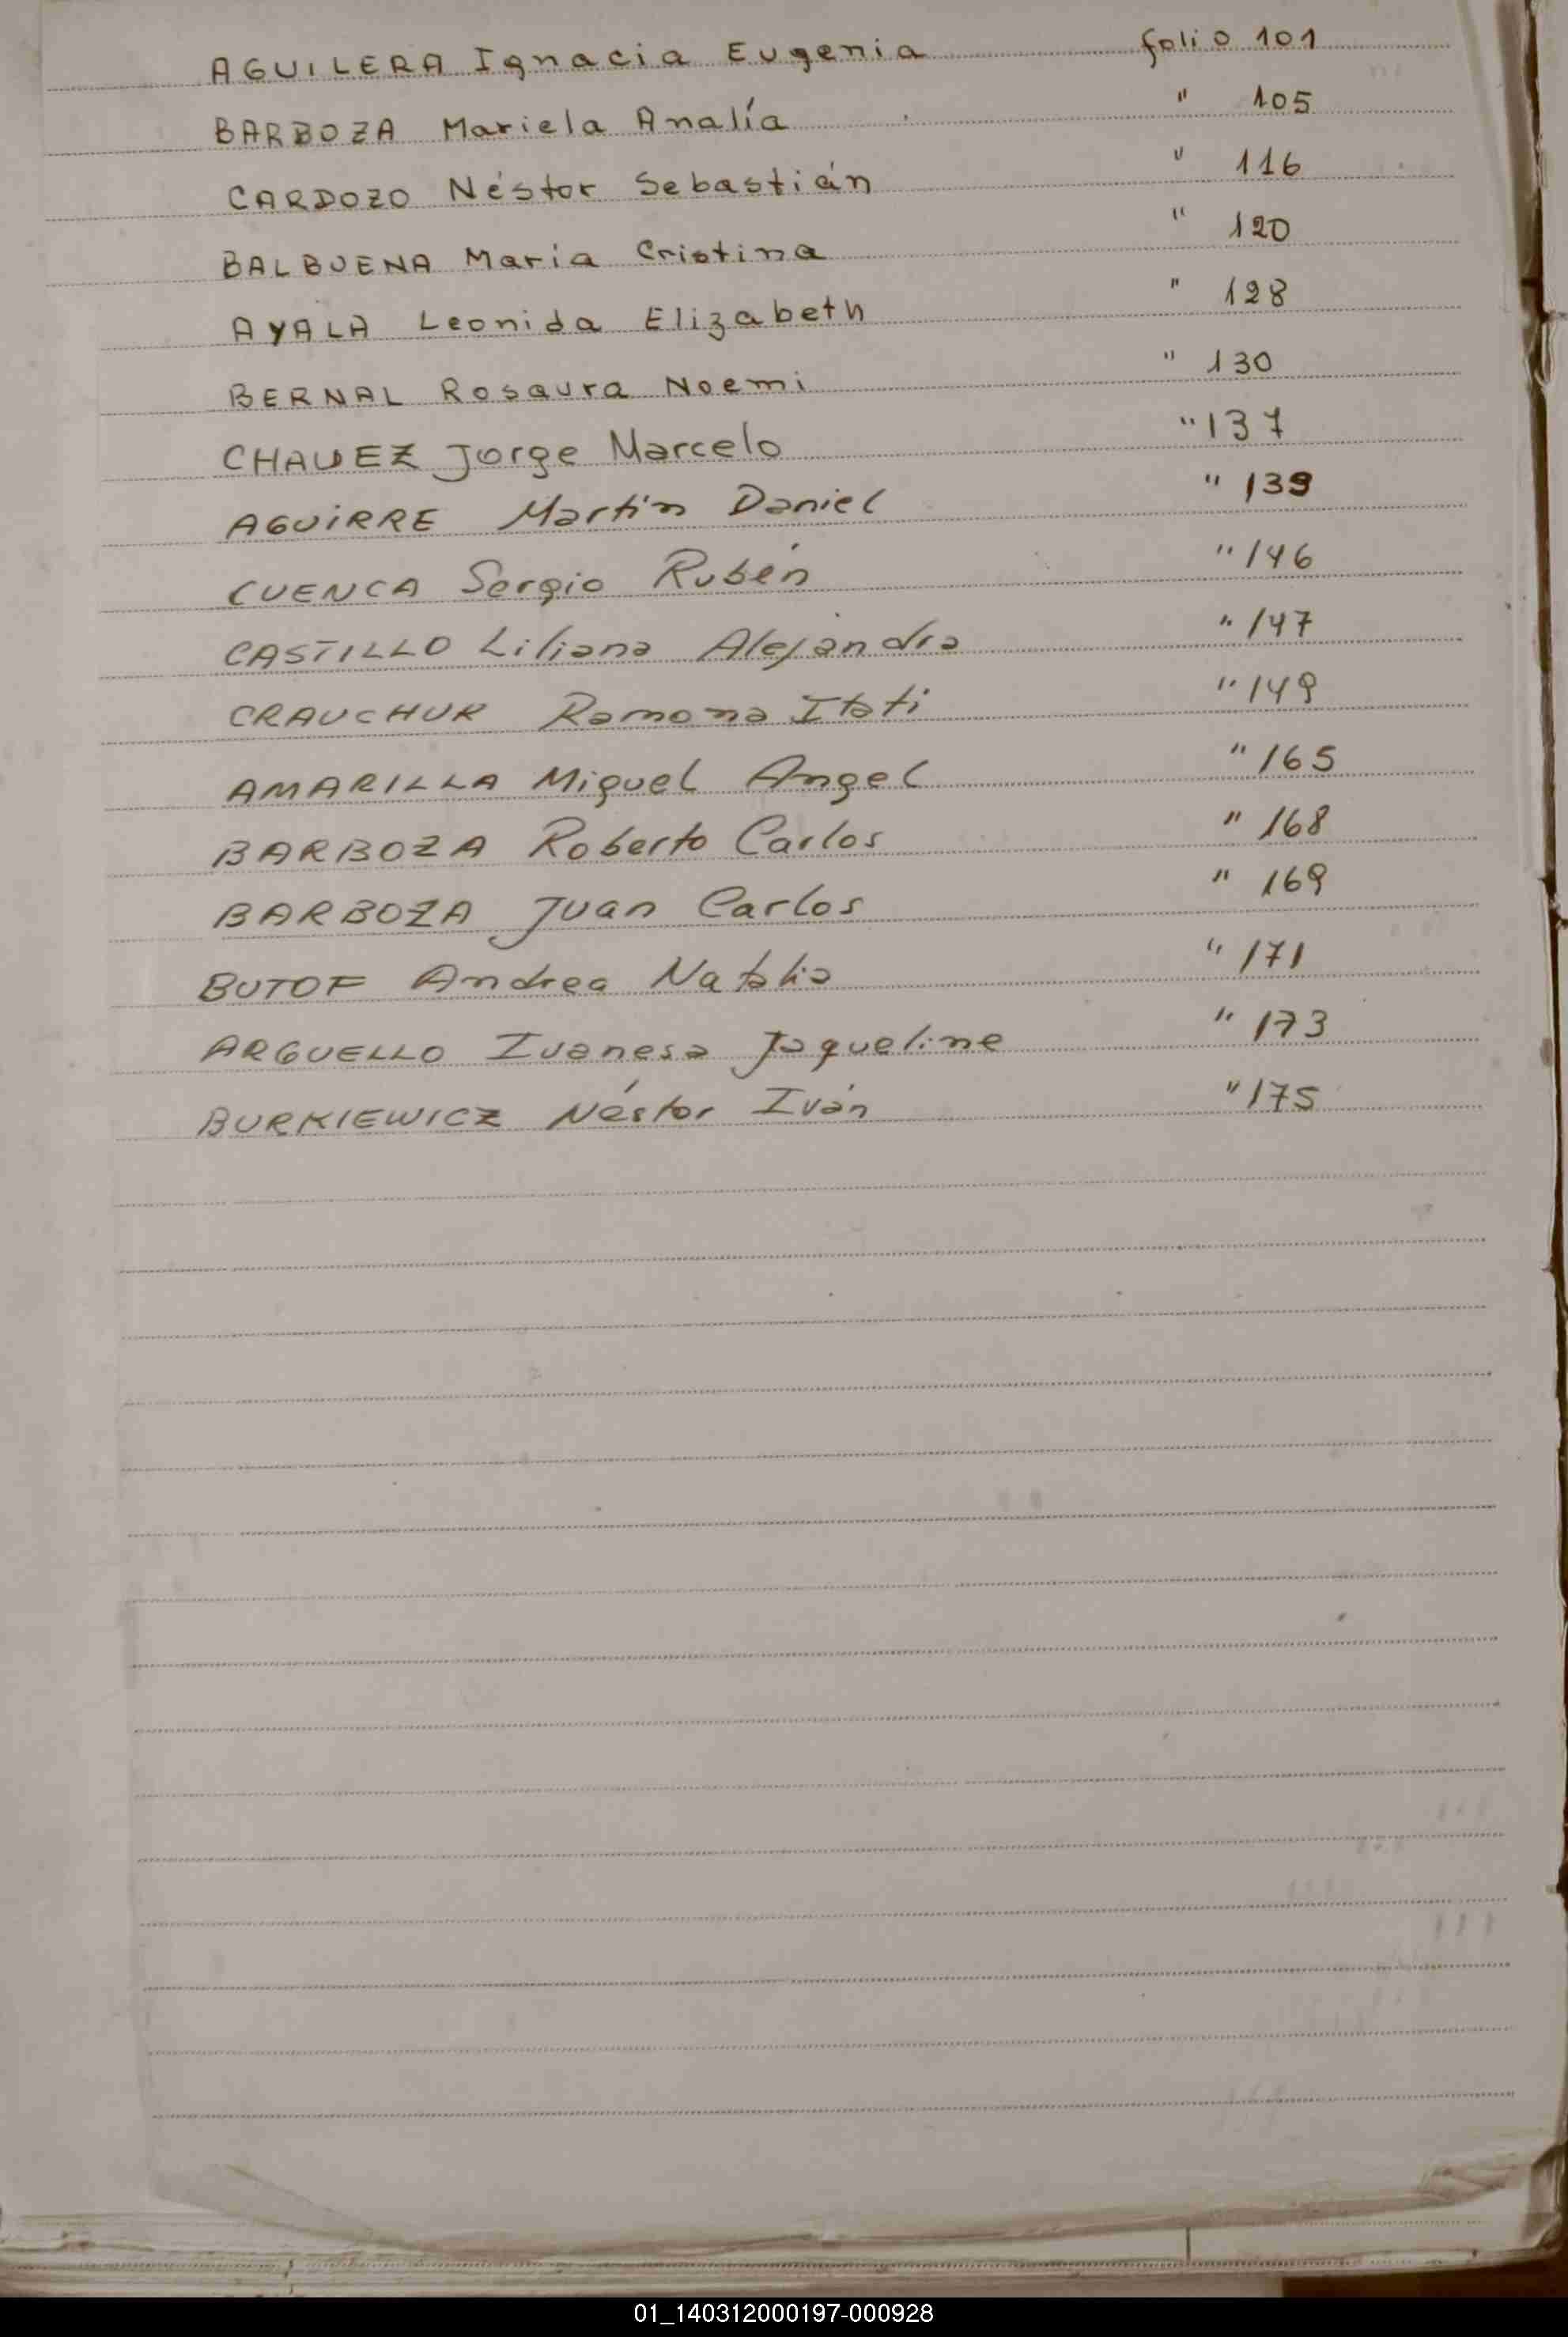 AGUILERA Ignacia Eugenia folio 101
BARBOZA Mariela Analía " 105
CARDOZO Néstor Sebastián " 116
BALBUENA María Cristina " 120
AYALA Leonida Elizabeth " 128
BERNAL Rosaura Noemi " 130
CHAVEZ Jorge Marcelo " 137
AGUIRRE Martín Daniel " 139
CUENCA Sergio Rubén " 146
CASTILLO Liliana Alejandra " 147
CRAUCHUK Ramona Itati " 149
AMARILLA Miguel Angel " 165
BARBOZA Roberto Carlos " 168
BARBOZA Juan Carlos " 169
BUTOF Andrea Natalia " 171
ARGUELLO Ivanesa Jaqueline " 173
BURKIEWICZ Néstor Iván " 175
01_140312000197-000928